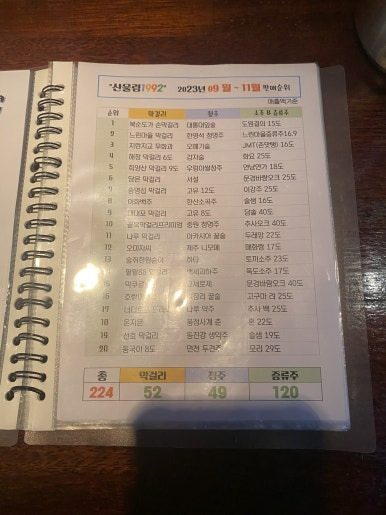 "산울림1992" 2023년 09 월 ~ 11월 판매순위
매출액기준
순위 막걸리 청주
1 복순도가 손막걸리 대통대잎술 도원결의 15도
2 느린마을 막걸리 한영석 청명주 느린마을증류주16.9
3 지란지교 무화과 오메기술 JMT(존맛탱) 16도
4 해창 막걸리 6도 감자술 화요 25도
5 희양산 막걸리 9도 우렁이쌀청주 연남연가 18도
6 담은 막걸리 서설 문경바람오크 25도
7 송명섭 막걸리 고유 12도 이강주 25도
8 이화백주 한산소곡주 솔샘 16도
9 대대포 막걸리 고유 8도 담솔 40도
10 골목막걸리프리미엄 중원 청명주 추사오크 40도
11 나루 막걸리 아카시아 꿀술 두레앙 22도
12 오미자씨 제주 니모메 매화랑 17도
13 술취한원숭이 하타 토끼소주 23도
14 막걸리 독도소주 17도
15 문경바람오크 40도
16 고구마 려 25도
17 나루 약주 추사 백 25도
18 온지몬 동정사계 춘 22도
19 선호 막걸리 동진강 생약주 솔샘 19도
20 동국이 8도 면천 두견주 모리 29도
총 막걸리 청주 증류주
224 52 49 120